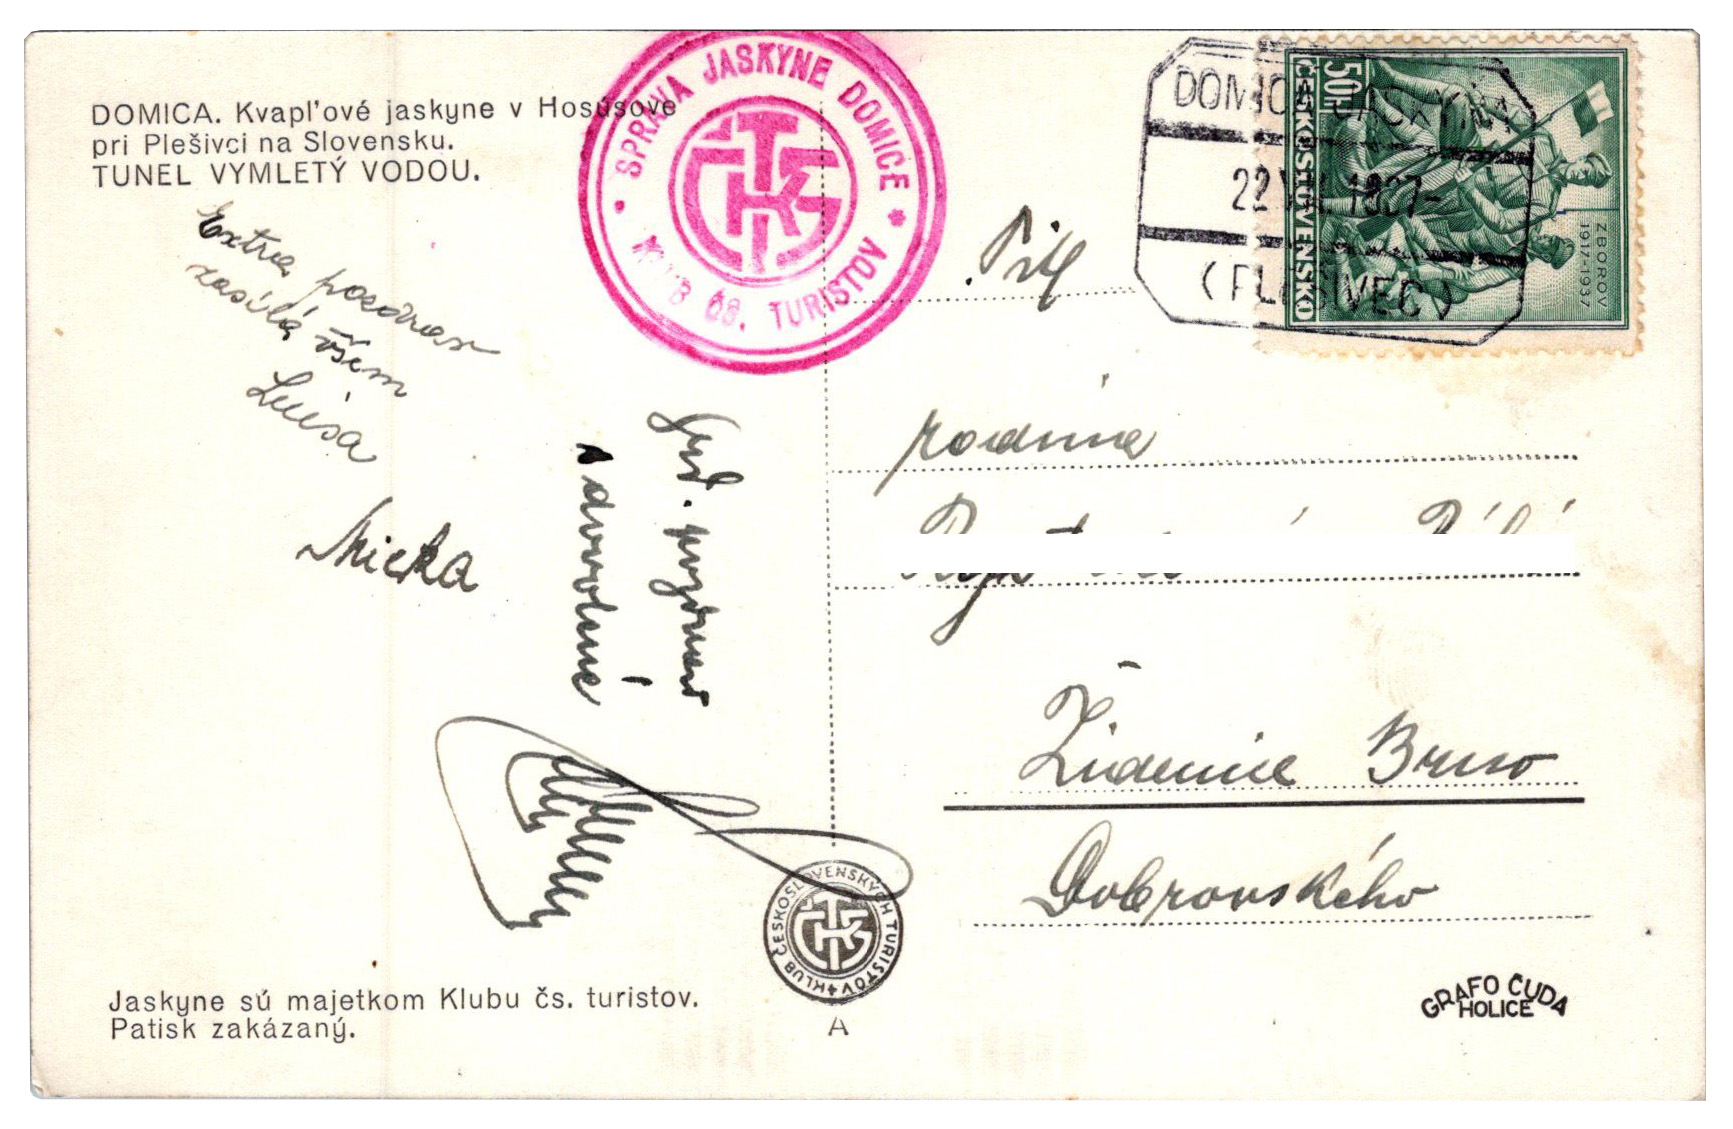 DOMICA. Kvapľové jaskyne v Hosúsove
pri Plešivci na Slovensku.
TUNEL VYMLETÝ VODOU.
SPRÁVA JASKYNE DOMICE
KLUB ČS. TURISTOV
KČST
DOMICA JASKYŇA
22 VII. 1937
(PLEŠIVEC)
50h
ČESKOSLOVENSKO
ZBOROV
1917-1937
Extra pozdrav
zasílá všem
Luisa
Micka
Srd. pozdrav
z dovolené
rodina
Židenice Brno
Dobrovského
KLUB ČESKOSLOVENSKÝCH TURISTOV
KČST
Jaskyne sú majetkom Klubu čs. turistov.
Patisk zakázaný.
A
GRAFO ČUDA
HOLICE